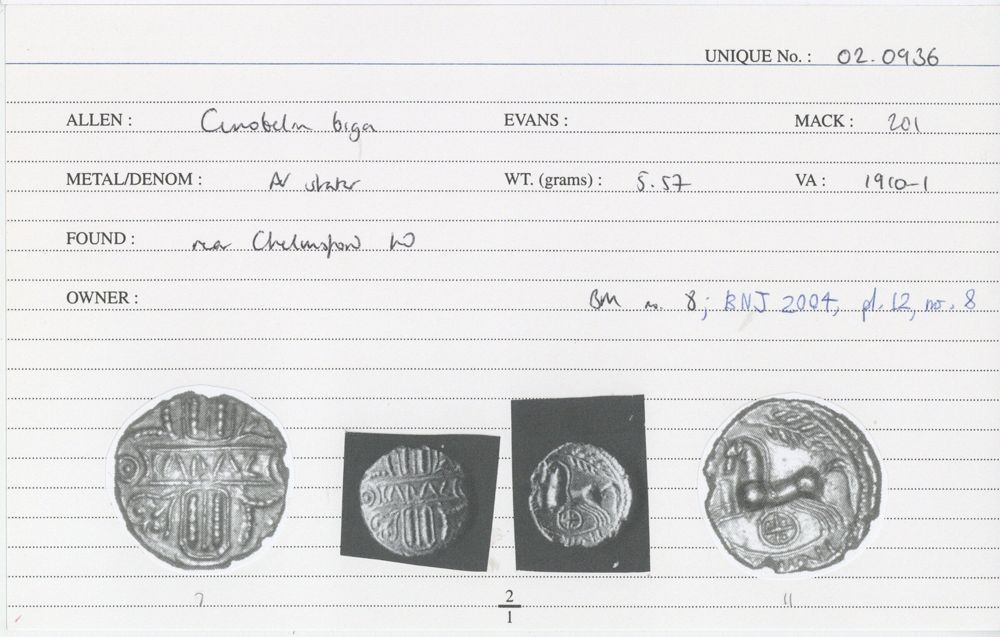 UNIQUE No. : 02.0936
ALLEN : Cunobelin biga EVANS : MACK : 201
METAL/DENOM : AV stater WT. (grams) : 5.57 VA : 1910-1
FOUND : near Chelmsford
OWNER : BM no. 8; BNJ 2004, pl. 12, no. 8
CAMVL
CAMVL
7 2 11
1